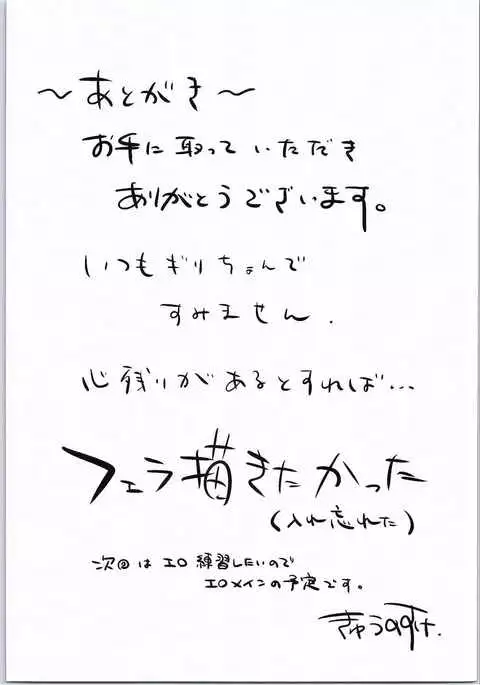 〜あとがき〜
お手に取っていただき
ありがとうございます。
いつもギリちょんで
すみません.
心残りがあるとすれば…
フェラ描きたかった
(入れ忘れた)
次回はエロ練習したいので
エロメインの予定です。